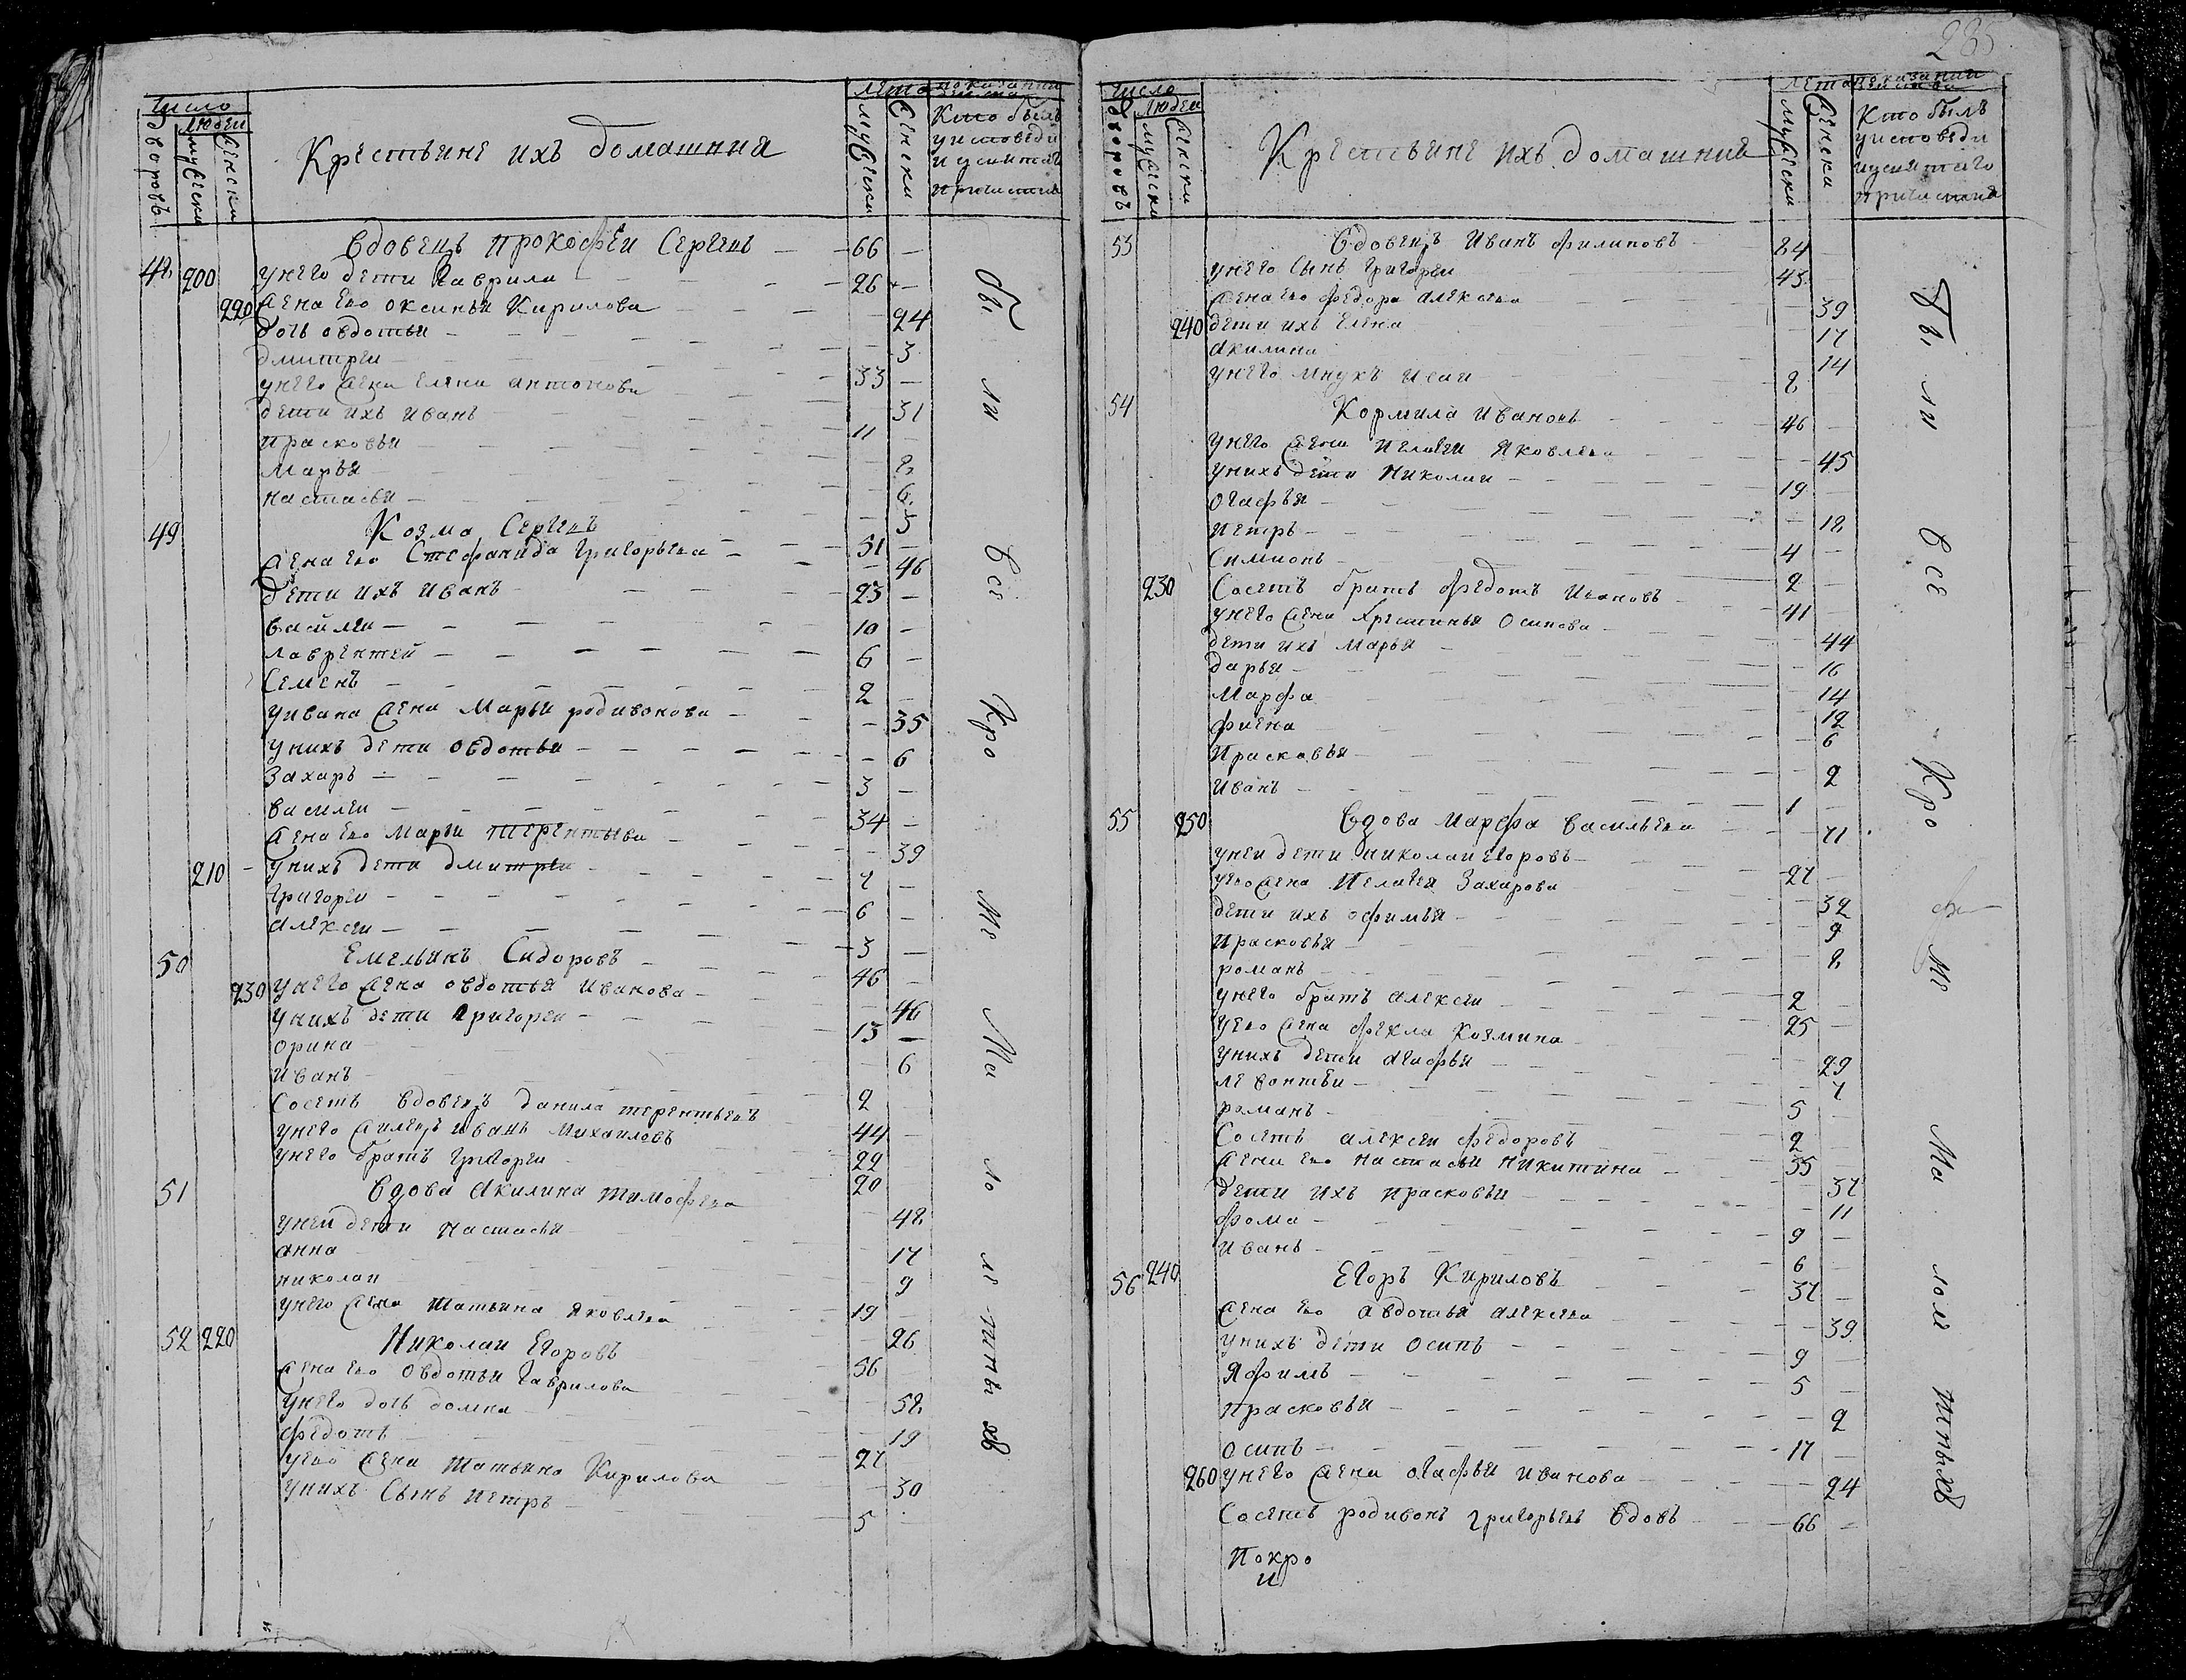 285
Число
Дворовъ
Людеи
Мужески
Женски
Крестьяне ихъ домашния
Лета
Мужески
Женски
показании
Кто былъ
у исповеди
и у святаго
причастия
вдовецъ прокофеи Сергеевъ 66
48 200 унего дети Гаврила 26
220 жена ево оксинья Кирилова 24
дочь овдотья 3
дмитреи 33
унего жена елена антонова 31
дети ихъ иванъ 11
прасковья 8
Марья 6
настасья 5
49 Козма Сергеевъ 51
жена ево Стефанида Григорьева 46
дети ихъ иванъ 23
василеи 10
лаврентей 6
Семенъ 2
уивана жена Марья родивонова 35
унихъ дети овдотья 6
Захаръ 3
василеи 34
жена ево Марья терентьева 39
210 унихъ дети дмитреи 7
Григореи 6
алексеи 3
50 Емельянъ Сидоровъ 46
230 унего жена овдотья иванова 46
унихъ дети Григореи 13
орина 6
иванъ 2
Соседъ вдовецъ данила терентьевъ 44
унего жилецъ иванъ михаиловъ 22
унего братъ григореи 20
51 вдова акилина тимофеева 48
унеи дети настасья 17
анна 9
николаи 19
унего жена татьяна яковлева 26
52 220 Николаи Егоровъ 56
жена ево овдотья гаврилова 58
унего дочь домна 19
федотъ 27
уево жена татьяна Кирилова 30
унихъ Сынъ петръ 5
бы ли все Кро ме Ма ло ле тныхъ
Число
Дворовъ
Людеи
Мужески
Женски
Крестьяне ихъ домашния
Лета
Мужески
Женски
показании
Кто былъ
у исповеди
и у святаго
причастия
53 вдовецъ Иванъ филиповъ 84
унего Сынъ григореи 45
жена ево федора алексеева 39
240 дети ихъ Елена 17
акилина 14
унего внукъ исаи 8
54 Кормила ивановъ 46
унего жена пелагея яковлева 45
унихъ дети николаи 19
огафья 18
петръ 4
Симионъ 2
230 Соседъ братъ федотъ ивановъ 41
унего жена Хрестинья осипова 44
дети ихъ марья 16
дарья 14
Марфа 12
фиена 6
прасковья 2
иванъ 1
55 250 вдова марфа васильева 71
унеи дети николаи егоровъ 27
уево жена пелагея Захарова 32
дети ихъ офимья 9
прасковья 8
романъ 2
унего братъ алексеи 25
уево жена фекла козмина 29
унихъ дети агафья 7
левонтеи 5
романъ 2
Соседъ алексеи федоровъ 35
жена ево настасья никитина 37
дети ихъ прасковья 11
фома 9
иванъ 6
56 240 Егоръ Кириловъ 37
жена ево авдотья алексеева 39
унихъ дети осипъ 9
яфимъ 5
прасковья 2
осипъ 17
260 унего жена огафья иванова 24
Соседъ родивонъ григорьевъ вдовъ 66
бы ли все Кро ме Ма лоле тныхъ
Покро
и